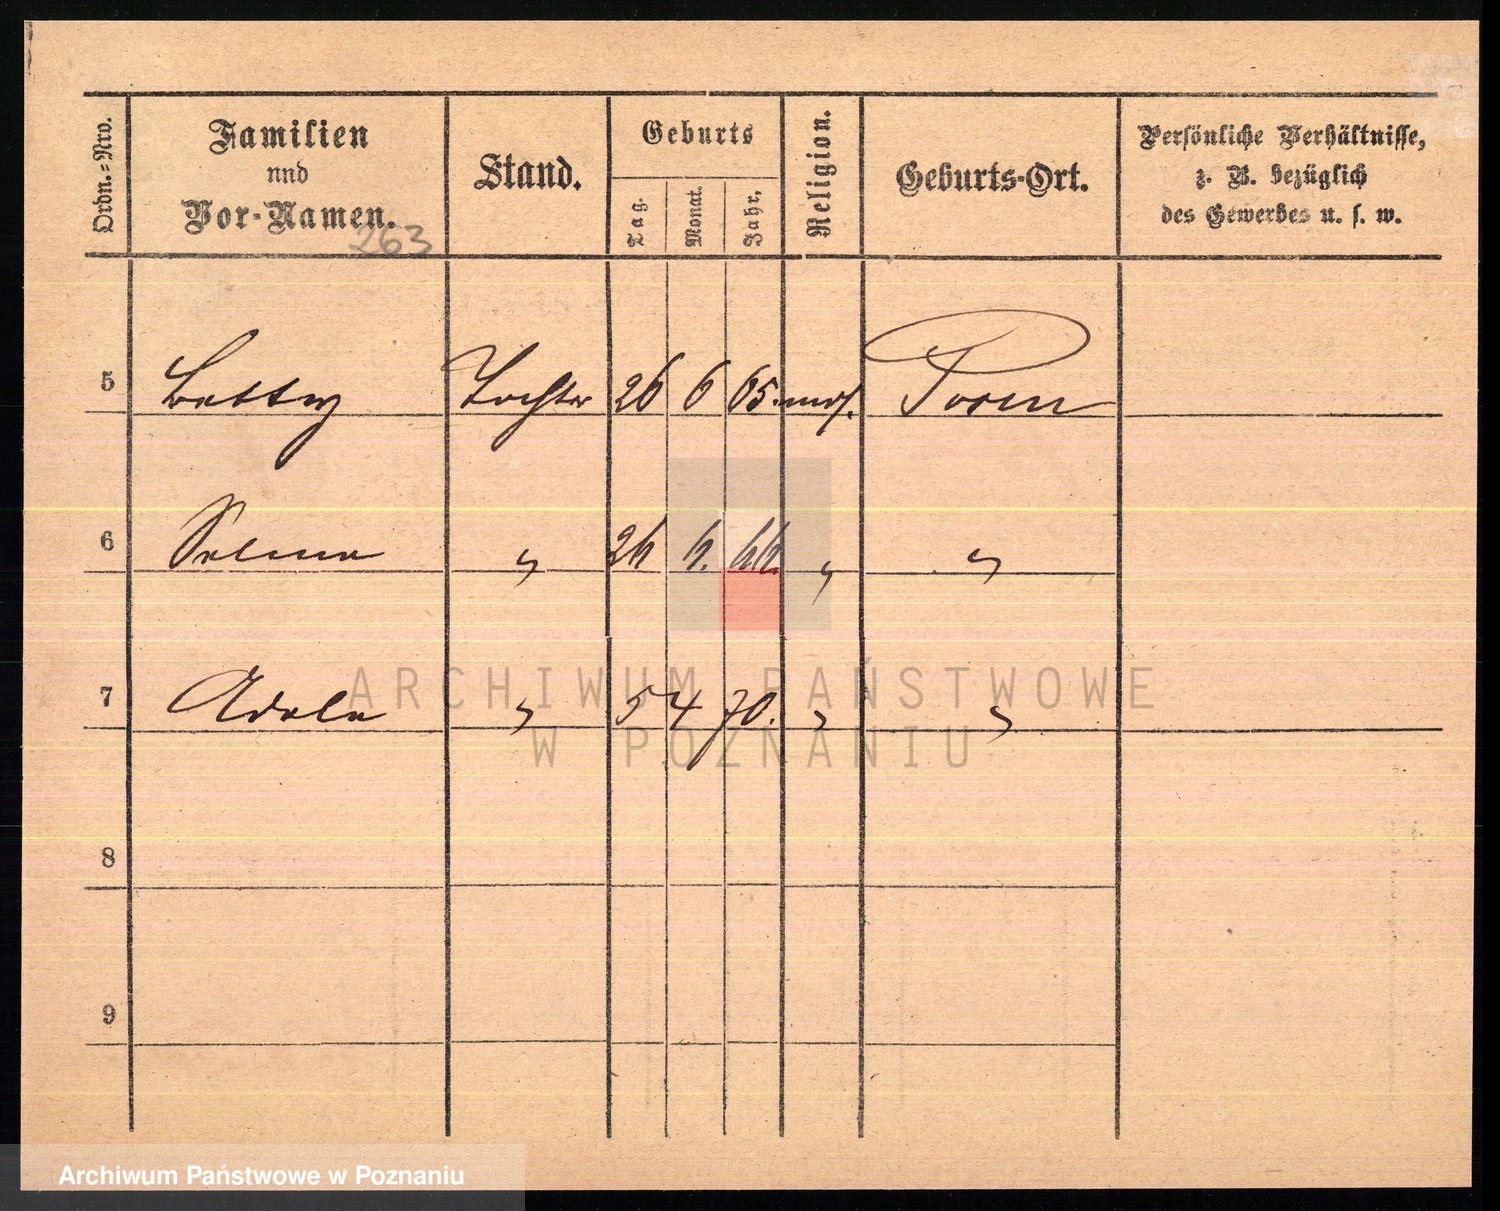 Ordn.-Nro.
Familien
und
Vor-Namen.
263
Stand.
Geburts
Tag.
Monat.
Jahr.
Religion.
Geburts-Ort.
Persönliche Verhältnisse,
z. B. bezüglich
des Gewerbes u. s. w.
5 Betty Tochter 26 6 65. mos. Posen
6 Selma " 26 6. 66. " "
7 Adele " 5 4 70. " "
8
9
ARCHIWUM PAŃSTWOWE
W POZNANIU
Archiwum Państwowe w Poznaniu